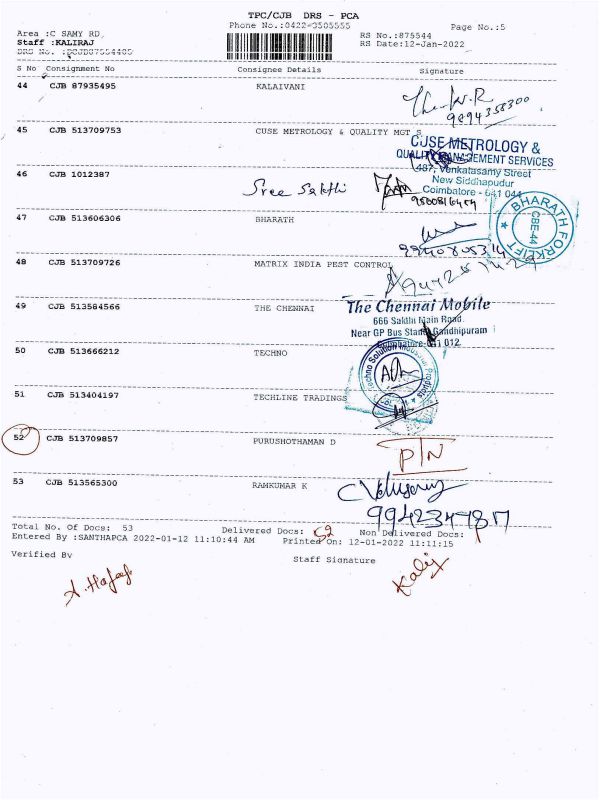 TPC/CJB DRS - PCA
Phone No.:0422-3505555
Page No.:5
Area :C SAMY RD,
RS No.:875544
Staff :KALIRAJ
RS Date:12-Jan-2022
S No Consignment No Consignee Details Signature
44 CJB 87935495 KALAIVANI
9894358300
45 CJB 513709753 CUSE METROLOGY & QUALITY MGT S
CUSE METROLOGY &
QUALITY MANAGEMENT SERVICES
487, Venkatasamy Street
New Siddhapudur
Coimbatore - 641 044
46 CJB 1012387 Sree Sakthi
47 CJB 513606306 BHARATH
BHARATH FORKLIFT
CBE-44
48 CJB 513709726 MATRIX INDIA PEST CONTROL
49 CJB 513584566 THE CHENNAI
The Chennai Mobile
666 Sakthi Main Road
Near GP Bus Stand Gandhipuram
Coimbatore-641 012
50 CJB 513666212 TECHNO
Techno Solution Industrial Products
51 CJB 513404197 TECHLINE TRADINGS
52 CJB 513709857 PURUSHOTHAMAN D
P/N
53 CJB 513565300 RAMKUMAR K
Total No. Of Docs: 53 Delivered Docs: 52 Non Delivered Docs: 1
Entered By :SANTHAPCA 2022-01-12 11:10:44 AM Printed On: 12-01-2022 11:11:15
Verified By
Staff Signature
Kalij